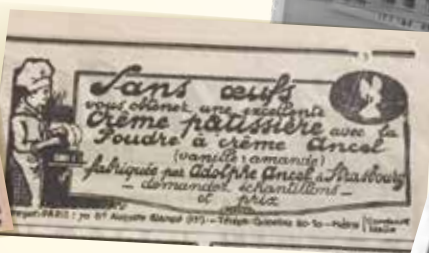 Sans œufs
vous obtenez une excellente
Crème pâtissière avec la
Poudre à crème Ancel
(vanille : amande)
fabriquée par Adolphe Ancel à Strasbourg
_ demandez échantillons _
et prix
PARIS : 70 Bd Auguste Blanqui